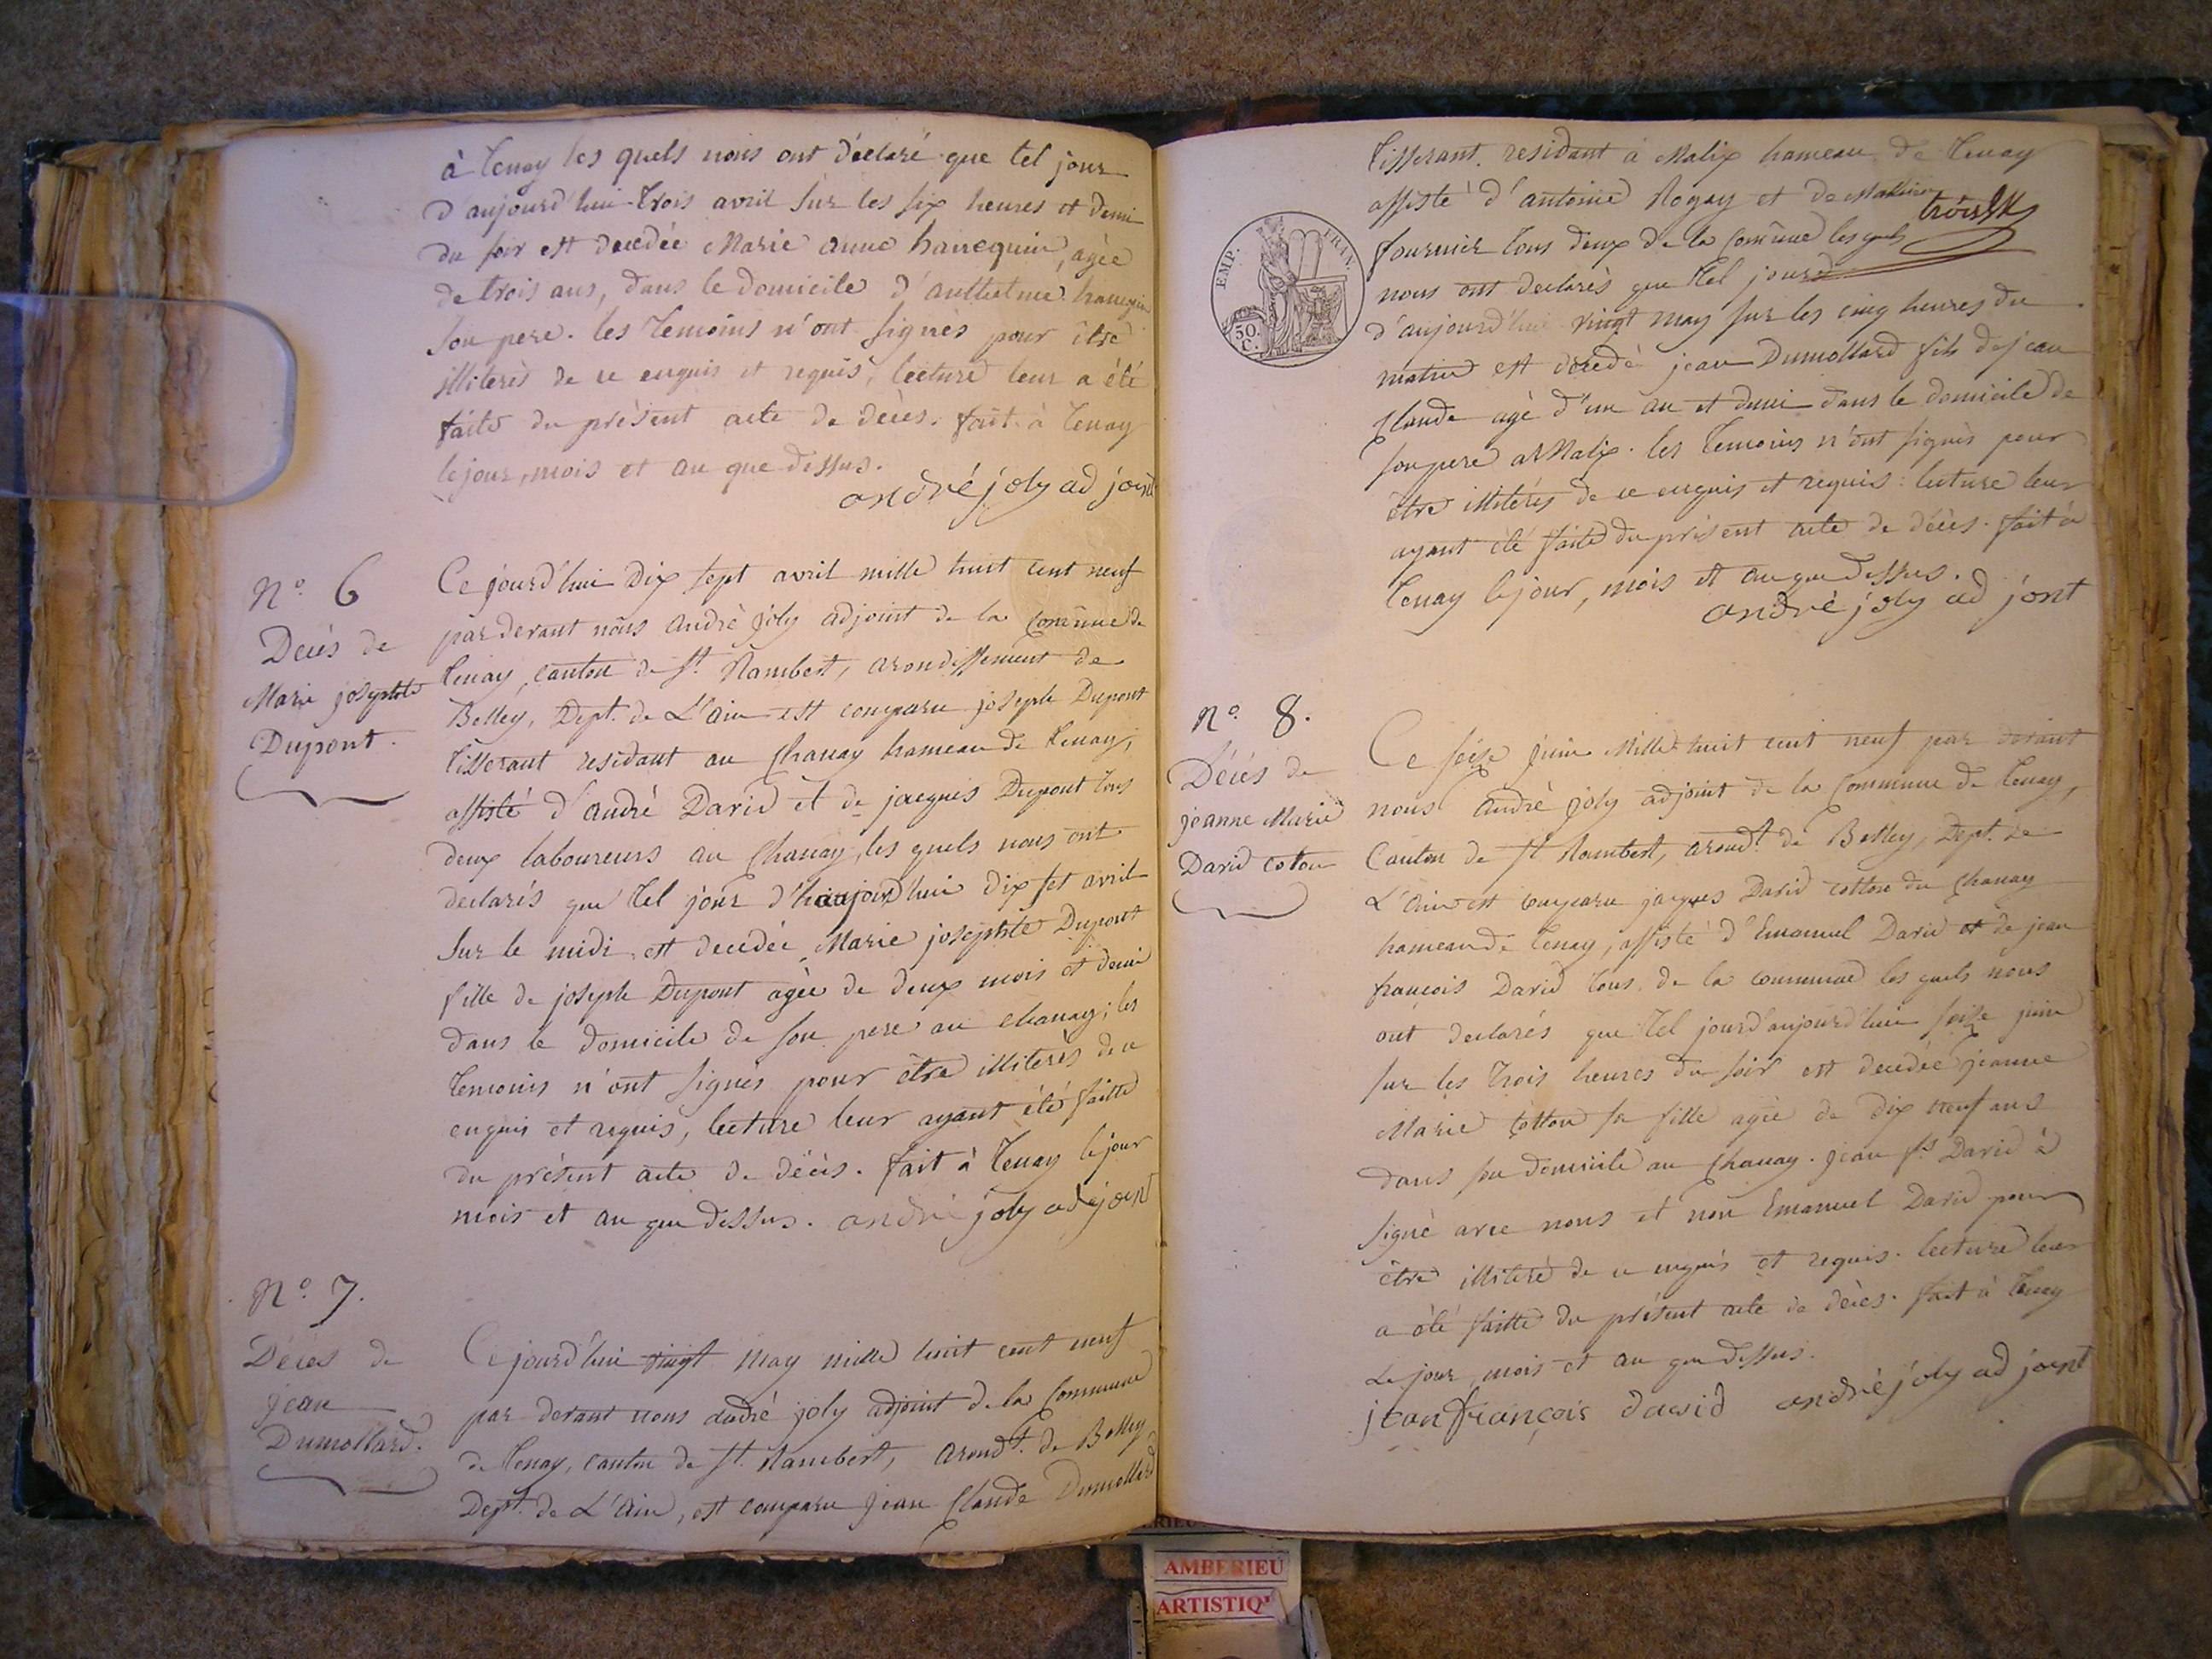 à Tenay les quels nous ont déclaré que tel jour
d'aujourd'hui trois avril sur les six heures et demi
du soir est decedée Marie anne hanequin, agée
de trois ans, dans le domicile d'anthelme hanequin
son pere. les temoins n'ont signés pour être
illiterés de ce enquis et requis, lecture leur a été
faite du présent acte de décès. fait à Tenay
le jour, mois et an que dessus.
andré joly ad joint
N.o 6
Décés de
Marie josephte
Dupont.
Ce jourd'hui dix sept avril mille huit cent neuf
par devant nous andré joly adjoint de la comûne de
Tenay, canton de St. Rambert, arondissement de
Belley, Dept. de L'ain est comparu joseph Dupont
tisserant residant au Chanay hameau de Tenay,
assisté d'andré David et de jacques Dupont tous
deux laboureurs au Chanay, les quels nous ont
declarés que tel jour d'haujourd'hui dix set avril
sur le midi est decedée Marie josephte Dupont
fille de joseph Dupont agée de deux mois et demi
dans le domicile de son pere au chanay; les
temoins n'ont signés pour être illiterés de ce
enquis et requis, lecture leur ayant été faitte
du présent acte de décès. fait à Tenay le jour
mois et an que dessus. andré joly adejoint
N.o 7.
Décès de
jean
Dumollard.
Ce jourd'hui vingt may mille huit cent neuf
par devant nous andré joly adjoint de la Commune
de Tenay, canton de St. Rambert, arondt. de Belley
Dept. de L'ain, est comparu jean Claude Dumollard
tisserant residant à Malix hameau de Tenay
assisté d'antoine Rogay et de
fournier tous deux de la comûne les quels
nous ont declarés que tel jour
d'aujourd'hui vingt may sur les cinq heures du
matin est decedé jean Dumollard fils de jean
Claude agé d'un an et demi dans le domicile de
son pere a Malix. les temoins n'ont signés pour
être illiterés de ce enquis et requis: lecture leur
ayant été faite du présent acte de décès. fait à
Tenay le jour, mois et an que dessus.
andrè joly ad jont
EMP. FRAN.
50.
C.
N.o 8.
Décés de
jeanne Marie
David coton
Ce seize juin Mille huit cent neuf par devant
nous andré joly adjoint de la Commune de Tenay,
Canton de St Rambert, arondt. de Belley, Dept. de
L'ain est comparu jacques David cotton du Chanay
hameau de Tenay, assisté d'Emanuel David et de jean
françois David tous de la commune les quels nous
ont declarés que tel jour d'aujourd'hui seize juin
sur les trois heures du soir est decedée jeanne
Marie cotton sa fille agée de dix neuf ans
dans son domicile au Chanay. jean fs. David à
signé avec nous et non Emanuel David pour
être illiteré de ce enquis et requis. lecture leur
a été faitte du présent acte de décès. fait à Tenay
Le jour, mois et an que dessus.
jean françois david andrè joly ad joint
AMBERIEU
ARTISTIQ'